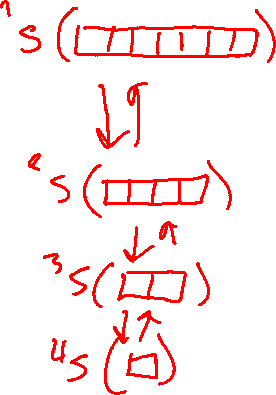 1 S ( )
2 S ( )
3 S ( )
4 S ( )